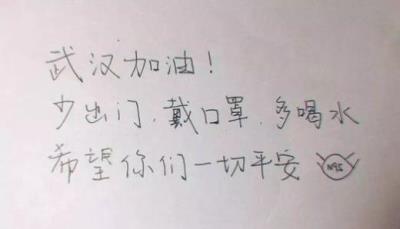 武汉加油！
少出门，戴口罩，多喝水
希望你们一切平安 N95